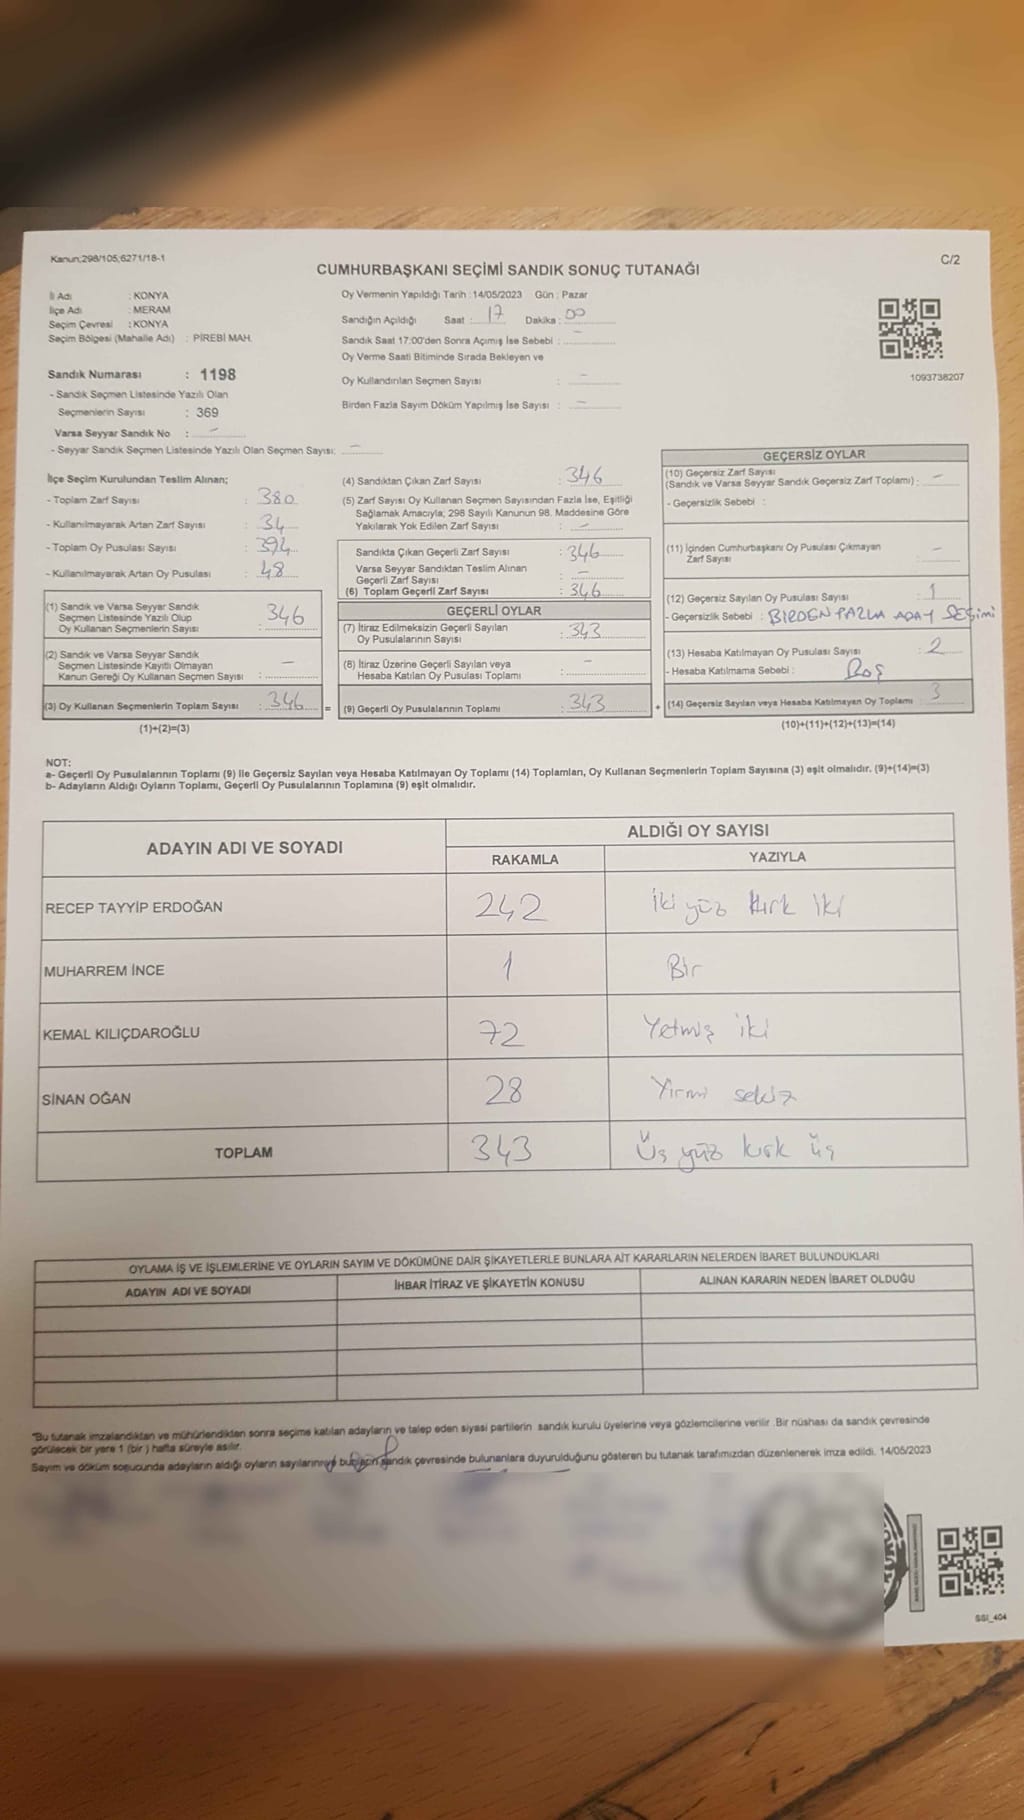 Kanun;298/105;6271/18-1
C/2
CUMHURBAŞKANI SEÇİMİ SANDIK SONUÇ TUTANAĞI
İl Adı : KONYA
İlçe Adı : MERAM
Seçim Çevresi : KONYA
Seçim Bölgesi (Mahalle Adı) : PİREBİ MAH.
Sandık Numarası : 1198
- Sandık Seçmen Listesinde Yazılı Olan
Seçmenlerin Sayısı : 369
Varsa Seyyar Sandık No : -
- Seyyar Sandık Seçmen Listesinde Yazılı Olan Seçmen Sayısı: -
Oy Vermenin Yapıldığı Tarih : 14/05/2023 Gün : Pazar
Sandığın Açıldığı Saat : 17 Dakika : 00
Sandık Saat 17:00'den Sonra Açımış İse Sebebi : -
Oy Verme Saati Bitiminde Sırada Bekleyen ve
Oy Kullandırılan Seçmen Sayısı : -
Birden Fazla Sayım Döküm Yapılmış İse Sayısı : -
1093738207
İlçe Seçim Kurulundan Teslim Alınan;
- Toplam Zarf Sayısı : 380
- Kullanılmayarak Artan Zarf Sayısı : 34
- Toplam Oy Pusulası Sayısı : 394
- Kullanılmayarak Artan Oy Pusulası : 48
(1) Sandık ve Varsa Seyyar Sandık
Seçmen Listesinde Yazılı Olup
Oy Kullanan Seçmenlerin Sayısı : 346
(2) Sandık ve Varsa Seyyar Sandık
Seçmen Listesinde Kayıtlı Olmayan
Kanun Gereği Oy Kullanan Seçmen Sayısı : -
(3) Oy Kullanan Seçmenlerin Toplam Sayısı : 346 =
(1)+(2)=(3)
(4) Sandıktan Çıkan Zarf Sayısı : 346
(5) Zarf Sayısı Oy Kullanan Seçmen Sayısından Fazla İse, Eşitliği
Sağlamak Amacıyla; 298 Sayılı Kanunun 98. Maddesine Göre
Yakılarak Yok Edilen Zarf Sayısı : -
Sandıkta Çıkan Geçerli Zarf Sayısı : 346
Varsa Seyyar Sandıktan Teslim Alınan
Geçerli Zarf Sayısı : -
(6) Toplam Geçerli Zarf Sayısı : 346
GEÇERLİ OYLAR
(7) İtiraz Edilmeksizin Geçerli Sayılan
Oy Pusulalarının Sayısı : 343
(8) İtiraz Üzerine Geçerli Sayılan veya
Hesaba Katılan Oy Pusulası Toplamı : -
(9) Geçerli Oy Pusulalarının Toplamı : 343 +
GEÇERSİZ OYLAR
(10) Geçersiz Zarf Sayısı
(Sandık ve Varsa Seyyar Sandık Geçersiz Zarf Toplamı) : -
- Geçersizlik Sebebi :
(11) İçinden Cumhurbaşkanı Oy Pusulası Çıkmayan
Zarf Sayısı : -
(12) Geçersiz Sayılan Oy Pusulası Sayısı : 1
- Geçersizlik Sebebi : BİRDEN FAZLA ADAY SEÇimi
(13) Hesaba Katılmayan Oy Pusulası Sayısı : 2
- Hesaba Katılmama Sebebi : Boş
(14) Geçersiz Sayılan veya Hesaba Katılmayan Oy Toplamı : 3
(10)+(11)+(12)+(13)=(14)
NOT:
a- Geçerli Oy Pusulalarının Toplamı (9) ile Geçersiz Sayılan veya Hesaba Katılmayan Oy Toplamı (14) Toplamları, Oy Kullanan Seçmenlerin Toplam Sayısına (3) eşit olmalıdır. (9)+(14)=(3)
b- Adayların Aldığı Oyların Toplamı, Geçerli Oy Pusulalarının Toplamına (9) eşit olmalıdır.
ADAYIN ADI VE SOYADI
ALDIĞI OY SAYISI
RAKAMLA YAZIYLA
RECEP TAYYİP ERDOĞAN 242 İki yüz kırk iki
MUHARREM İNCE 1 Bir
KEMAL KILIÇDAROĞLU 72 Yetmiş iki
SİNAN OĞAN 28 Yirmi sekiz
TOPLAM 343 Üç yüz kırk üç
OYLAMA İŞ VE İŞLEMLERİNE VE OYLARIN SAYIM VE DÖKÜMÜNE DAİR ŞİKAYETLERLE BUNLARA AİT KARARLARIN NELERDEN İBARET BULUNDUKLARI
ADAYIN ADI VE SOYADI İHBAR İTİRAZ VE ŞİKAYETİN KONUSU ALINAN KARARIN NEDEN İBARET OLDUĞU
"Bu tutanak imzalandıktan ve mühürlendikten sonra seçime katılan adayların ve talep eden siyasi partilerin sandık kurulu üyelerine veya gözlemcilerine verilir .Bir nüshası da sandık çevresinde
görülecek bir yere 1 (bir ) hafta süreyle asılır.
Sayım ve döküm sonucunda adayların aldığı oyların sayılarının sandık çevresinde bulunanlara duyurulduğunu gösteren bu tutanak tarafımızdan düzenlenerek imza edildi. 14/05/2023
SSI_404